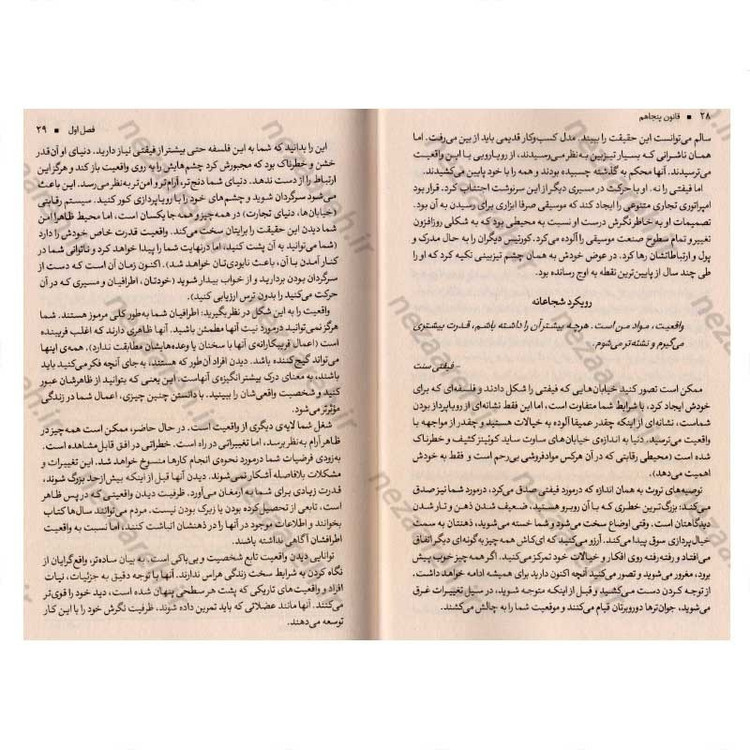 ۲۸ ■ قانون پنجاهم
سالم می‌توانست این حقیقت را ببیند. مدل کسب‌وکار قدیمی باید از بین می‌رفت. اما
همان ناشرانی که بسیار تیزبین به‌نظر می‌رسیدند، از رویارویی با این واقعیت
می‌ترسیدند. آنها محکم به گذشته چسبیده بودند و همه را با خود پایین می‌کشیدند.
اما فیفتی را نه. او با حرکت در مسیری دیگر از این سرنوشت اجتناب کرد. قرار بود
امپراتوری تجاری متنوعی را ایجاد کند که موسیقی صرفا ابزاری برای رسیدن به آن بود.
تصمیمات او به خاطر نگرش درست او نسبت به محیطی بود که به شکلی روزافزون
تغییر و تمام سطوح صنعت موسیقی را آلوده می‌کرد. کورتیس دیگران را به حال مدرک و
پول و ارتباطاتشان رها کرد. در عوض خودش به همان چشم تیزبینی تکیه کرد که او را
طی چند سال از پایین‌ترین نقطه به اوج رسانده بود.
رویکرد شجاعانه
واقعیت، مواد من است. هرچه بیشتر آن را داشته باشم، قدرت بیشتری
می‌گیرم و نشئه‌تر می‌شوم.
- فیفتی سنت
ممکن است تصور کنید خیابان‌هایی که فیفتی را شکل دادند و فلسفه‌ای که برای
خودش ایجاد کرد، با شرایط شما متفاوت است، اما این فقط نشانه‌ای از رویاپرداز بودن
شماست، نشانه‌ای از اینکه چقدر عمیقا آلوده به خیالات هستید و چقدر از مواجهه با
واقعیت می‌ترسید. دنیا به اندازه‌ی خیابان‌های ساوت ساید کوئینز کثیف و خطرناک
شده است (محیطی رقابتی که در آن هرکس موادفروشی بی‌رحم است و فقط به خودش
اهمیت می‌دهد).
توصیه‌های تروث به همان اندازه که درمورد فیفتی صدق می‌کرد، درمورد شما نیز صدق
می‌کند: بزرگ‌ترین خطری که با آن روبرو هستید، ضعیف شدن ذهن و تار شدن
دیدگاهتان است. وقتی اوضاع سخت می‌شود و شما خسته می‌شوید، ذهنتان به سمت
خیال‌پردازی سوق پیدا می‌کند. آرزو می‌کنید که ای‌کاش همه چیز به‌گونه‌ای دیگر اتفاق
می‌افتاد و رفته رفته روی افکار و خیالات خود تمرکز می‌کنید. اگر همه چیز خوب پیش
برود، مغرور می‌شوید و تصور می‌کنید آنچه اکنون دارید برای همیشه ادامه خواهد داشت.
از توجه کردن دست می‌کشید و قبل از اینکه متوجه شوید، در سیل تغییرات غرق
می‌شوید، جوان‌ترها دوروبرتان قیام می‌کنند و موقعیت شما را به چالش می‌کشند.
فصل اول ■ ۲۹
این را بدانید که شما به این فلسفه حتی بیشتر از فیفتی نیاز دارید. دنیای او آن‌قدر
خشن و خطرناک بود که مجبورش کرد چشم‌هایش را به روی واقعیت باز کند و هرگز این
ارتباط را از دست ندهد. دنیای شما دنج‌تر، آرام‌تر و امن‌تر به‌نظر می‌رسد. این باعث
می‌شود سرگردان شوید و چشم‌های خود را با رویاپردازی کور کنید. سیستم رقابتی
(خیابان‌ها، دنیای تجارت) در همه‌چیز و همه جا یکسان است، اما محیط ظاهرا امن
شما دیدن این حقیقت را برایتان سخت می‌کند. واقعیت قدرت خاص خودش را دارد
(شما می‌توانید به آن پشت کنید، اما درنهایت شما را پیدا خواهد کرد و ناتوانی شما در
کنار آمدن با آن، باعث نابودی‌تان خواهد شد.). اکنون زمان آن است که دست از
سرگردان بودن بردارید و از خواب بیدار شوید (خودتان، اطرافیان و مسیری که در آن
حرکت می‌کنید را بدون ترس ارزیابی کنید).
واقعیت را به این شکل در نظر بگیرید: اطرافیان شما به‌طور کلی مرموز هستند. شما
هرگز نمی‌توانید درمورد نیت آنها مطمئن باشید. آنها ظاهری دارند که اغلب فریبنده
است (اعمال فریبکارانه‌ی آنها با سخنان یا وعده‌هایشان مطابقت ندارد). همه‌ی اینها
می‌تواند گیج‌کننده باشد. دیدن افراد آن‌طور که هستند، به جای آنچه فکر می‌کنید باید
باشند، به معنای درک بیشتر انگیزه‌ی آنهاست. این یعنی که بتوانید از ظاهرشان عبور
کنید و شخصیت واقعی‌شان را ببینید. با دانستن چنین چیزی، اعمال شما در زندگی
مؤثرتر می‌شود.
شغل شما لایه‌ی دیگری از واقعیت است. در حال حاضر، ممکن است همه‌چیز در
ظاهر آرام به‌نظر برسد، اما تغییراتی در راه است. خطراتی در افق قابل مشاهده است.
به‌زودی فرضیات شما درمورد نحوه‌ی انجام کارها منسوخ خواهد شد. این تغییرات و
مشکلات بلافاصله آشکار نمی‌شوند. دیدن آنها قبل از اینکه بیش از حد بزرگ شوند،
قدرت زیادی برای شما به ارمغان می‌آورد. ظرفیت دیدن واقعیتی که در پس ظاهر
است، تابعی از تحصیل‌کرده بودن یا زیرک بودن نیست. مردم می‌توانند سال‌ها کتاب
بخوانند و اطلاعات موجود در آنها را در ذهنشان انباشت کنند، اما نسبت به واقعیت
اطرافشان آگاهی نداشته باشند.
توانایی دیدن واقعیت تابع شخصیت و بی‌باکی است. به بیان ساده‌تر، واقع‌گرایان از
نگاه کردن به شرایط سخت زندگی هراس ندارند. آنها با توجه دقیق به جزئیات، نیات
افراد و واقعیت‌های تاریکی که پشت هر سطحی پنهان شده است، دید خود را قوی‌تر
می‌کنند. آنها مانند عضلاتی که باید تمرین داده شوند، ظرفیت نگرش خود را با این کار
توسعه می‌دهند.
nezaamah.ir